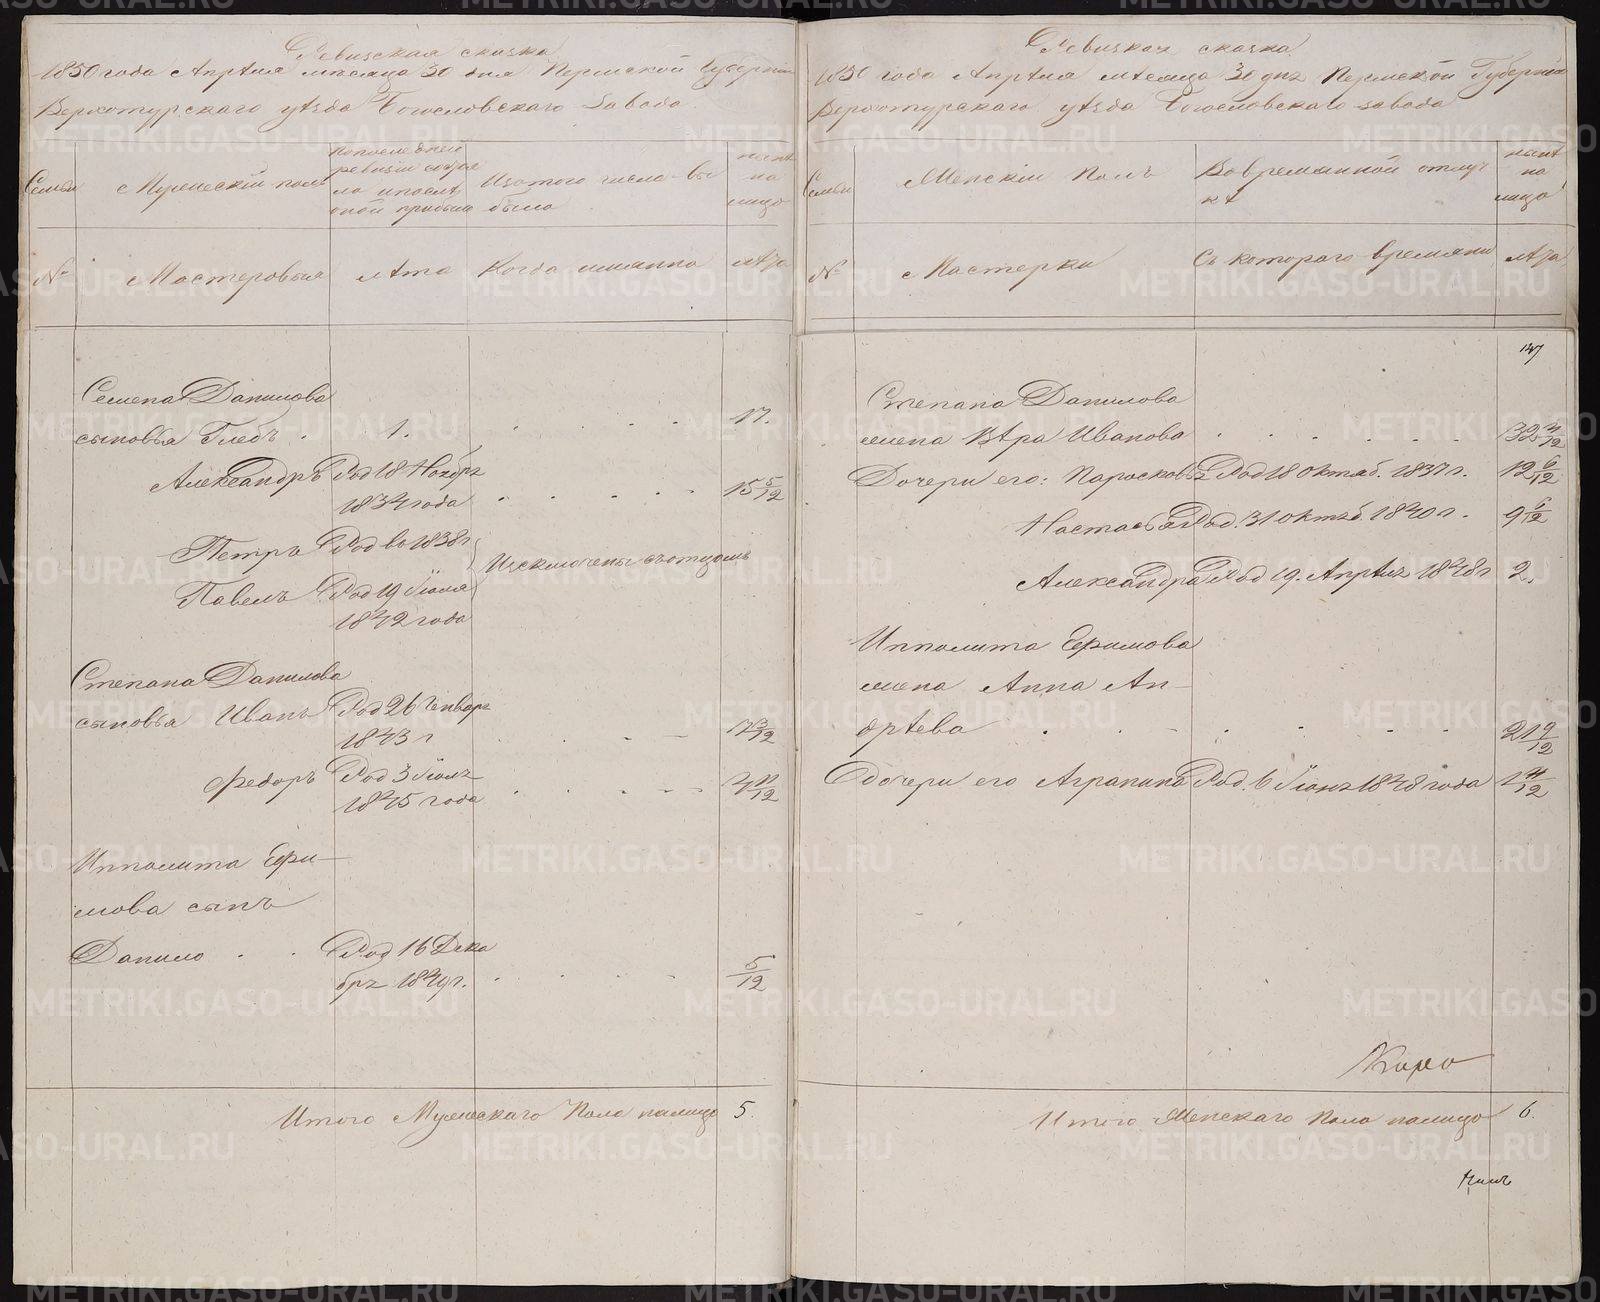 Ревизская сказка
1850 года Апрѣля мѣсяца 30 дня Пермской Губерніи
Верхотурскаго уѣзда Богословскаго завода
Семьи
Мужескій полъ
По последней
ревизіи состоя
ло и послѣ
оной прибыло
Изъ того числа вы
было
нынѣ
на
лицо
№
Мастеровыя
Лѣта
Когда имянно
лѣта
Семена Данилова
сыновья Глебъ . 1. 17.
Александръ Род 18 Ноябр
1834 года 15 5/12
Петръ Род во 1838 г
Исключены съ отцомъ
Павелъ Род 19 Іюля
1842 года
Степана Данилова
сыновья Иванъ Род 26 Генваря
1843 г 7 3/12
Федоръ Род 3 Іюля
1845 года 4 11/12
Ипполита Ефи-
мова сынъ
Данило . . Род 16 Дека
бря 1849 г. 5/12
Итого Мужескаго Пола налицо 5.
Ревизкая сказка
1850 года Апрѣля мѣсяца 30 дня Пермской Губерніи
Верхотурскаго уѣзда Богословскаго завода
Семьи
Женскій Полъ
Во временной отлуч
кѣ
нынѣ
на
лицо
№
Мастерки
Съ котораго времяни
лѣта
147
Степана Данилова
жена Вѣра Иванова 32 4/12
Дочери его: Парасковья Род 18 Октяб. 1837 г. 12 6/12
Настасья Род. 31 Октяб. 1840 г. 9 6/12
Александра Род 19. Апрѣля 1848 г 2.
Ипполита Ефимова
жена Анна Ан-
дрѣева 21 9/12
Дочери его Аграпина Род. 6 Іюня 1848 года 1 11/12
Итого Женскаго Пола налицо 6.
METRIKI.GASO-URAL.RU